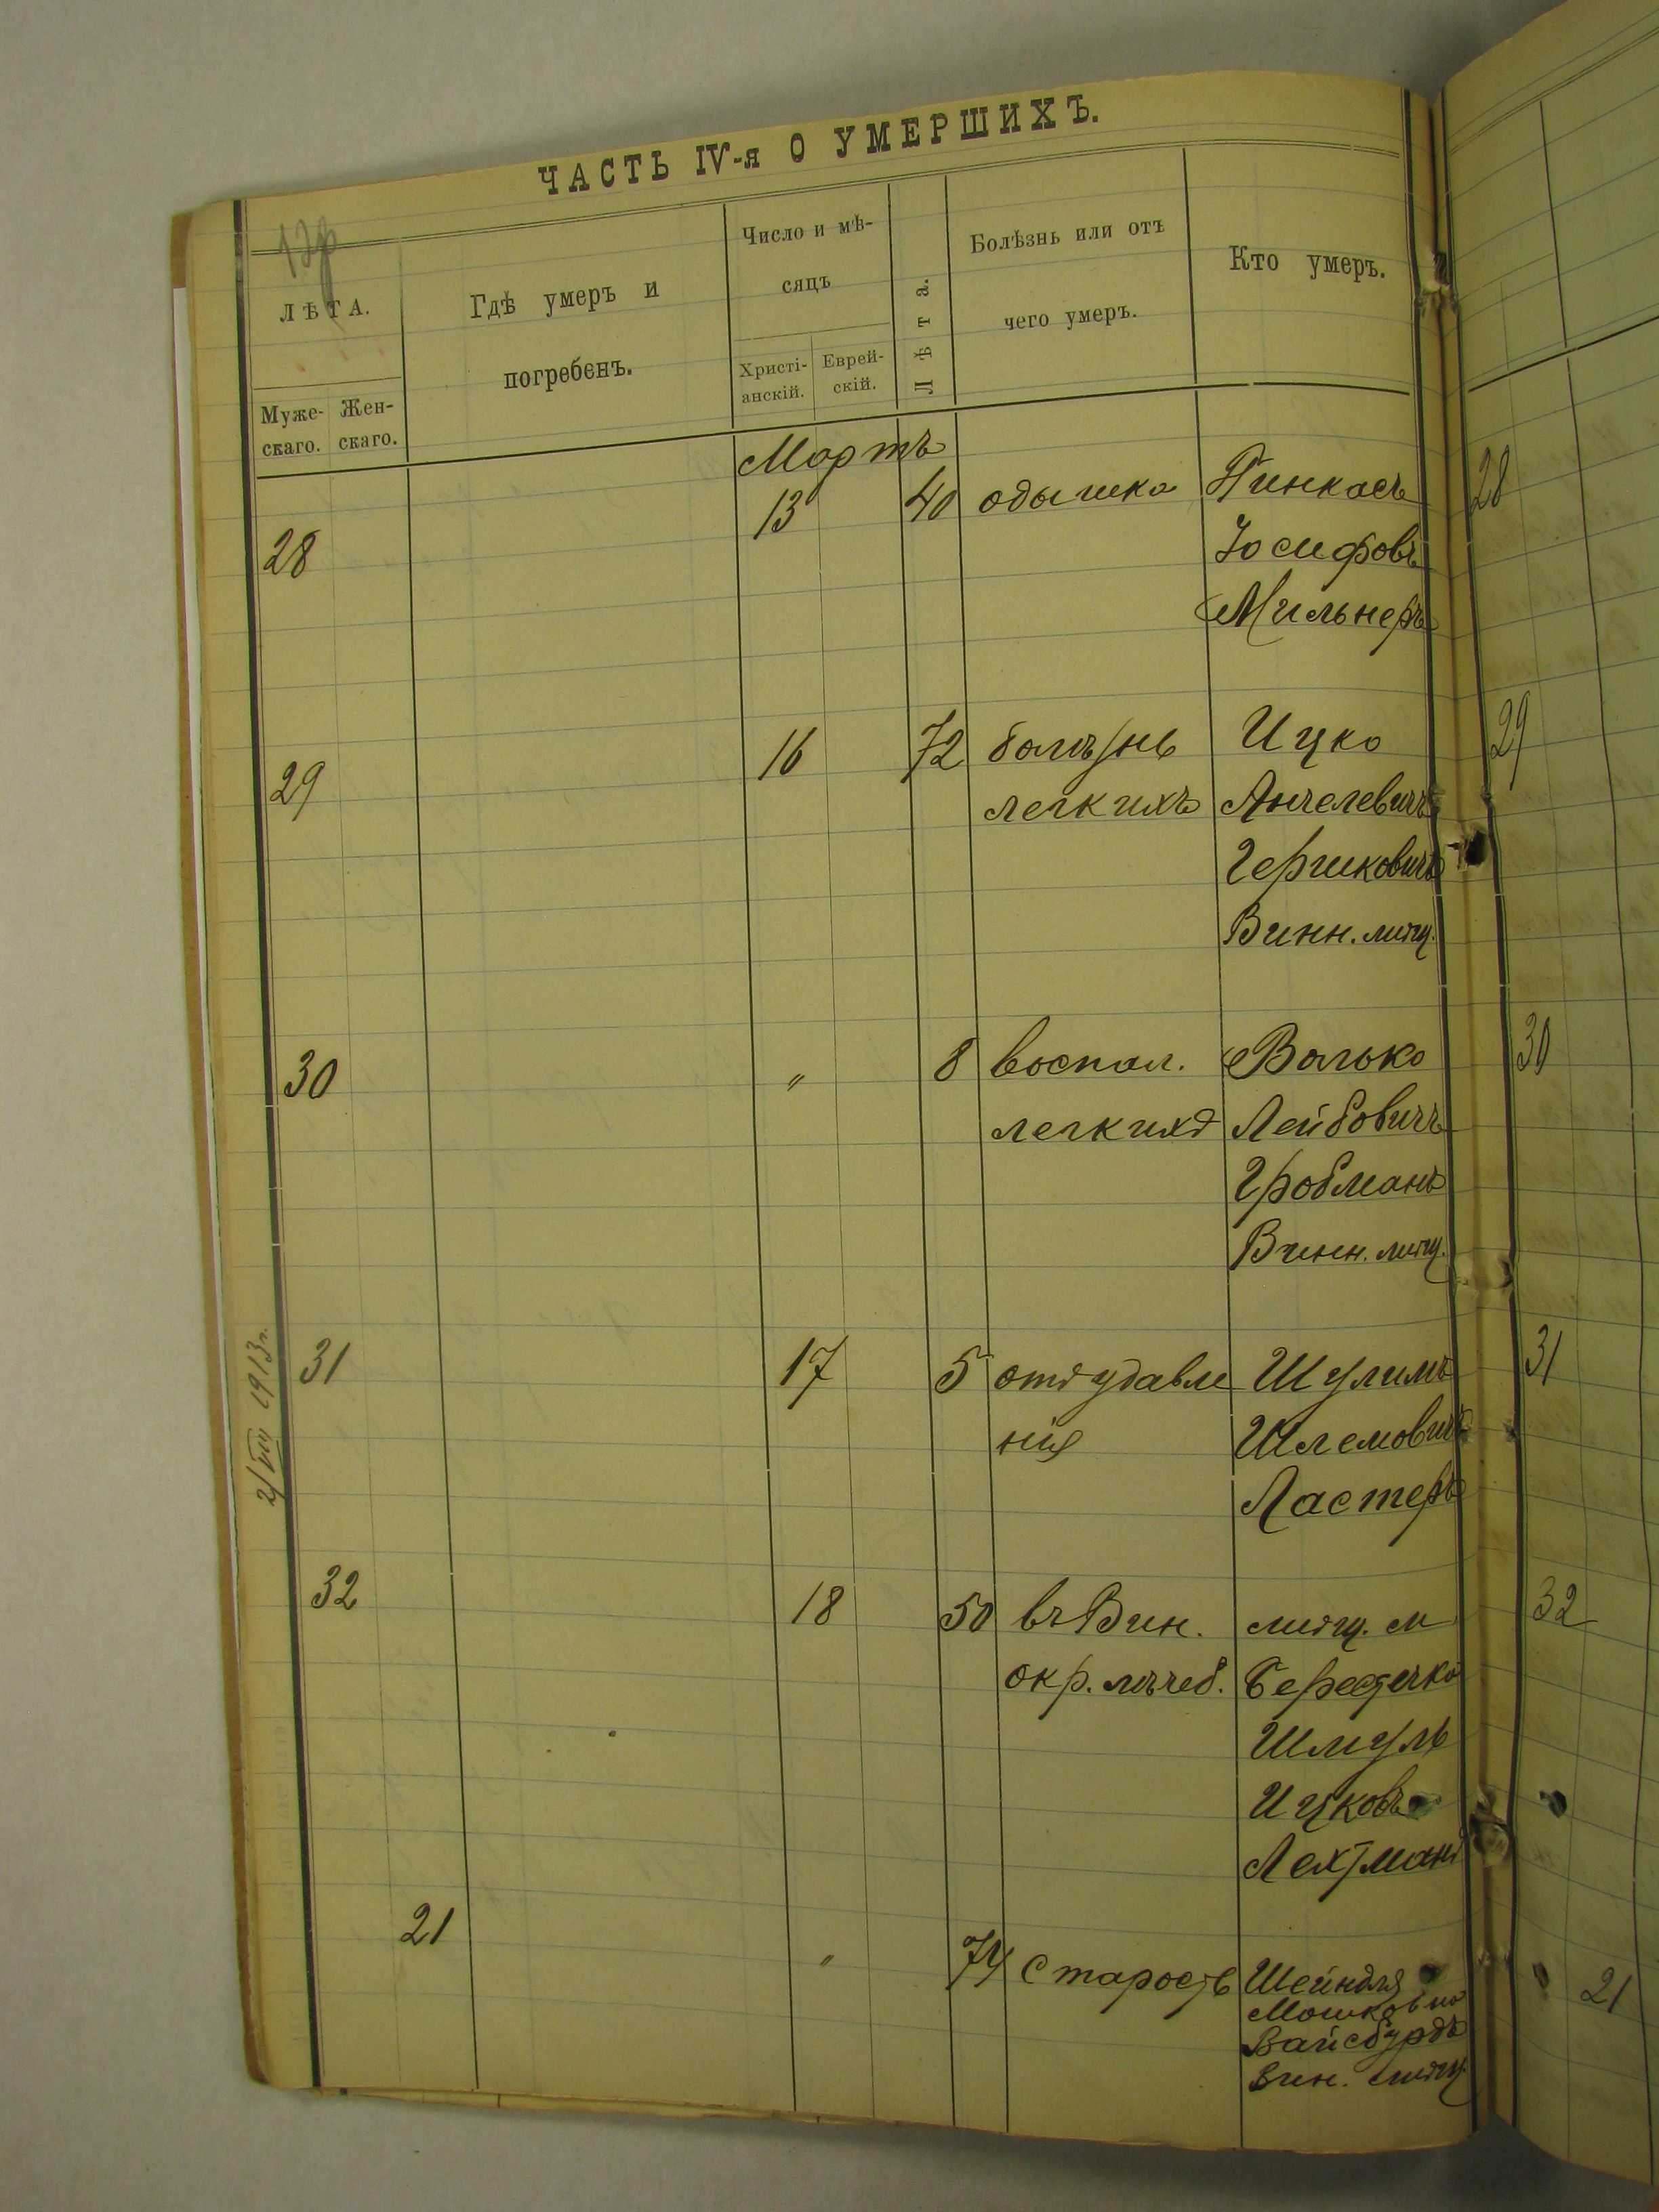 ЧАСТЬ IV-я О УМЕРШИХЪ.
ЛѢТА.
Муже-скаго.
Жен-скаго.
Гдѣ умеръ и
погребенъ.
Число и мѣ-
сяцъ
Христі-анскій.
Еврей-скій.
Лѣта.
Болѣзнь или отъ
чего умеръ.
Кто умеръ.
Мартъ
28 13 40 одышка Пинкасъ 28
Іосифовъ
Мильнеръ
29 16 72 болѣзнь Ицко 29
легкихъ Анчелевичъ
Гершковичъ
Винн. мѣщ.
30 " 8 воспал. Волько 30
легкихъ Лейбовичъ
Гробманъ
Винн. мѣщ.
31 17 5 отъ удавле Шулимъ 31
нія Шлемовичъ
Ластеръ
2/VIII 1913 г.
32 18 50 въ Вин. мѣщ. м 32
окр. лѣчеб. Берестечко
Шмуль
Ицковъ
Лехтманъ
21 " 74 старость Шейндля 21
Мошковна
Вайсбурдъ
Вин. мѣщ.